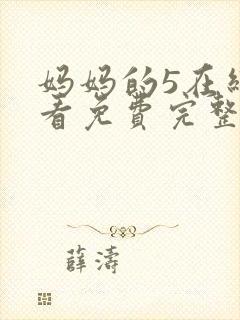 妈妈的5在
看免费完整
薛濤